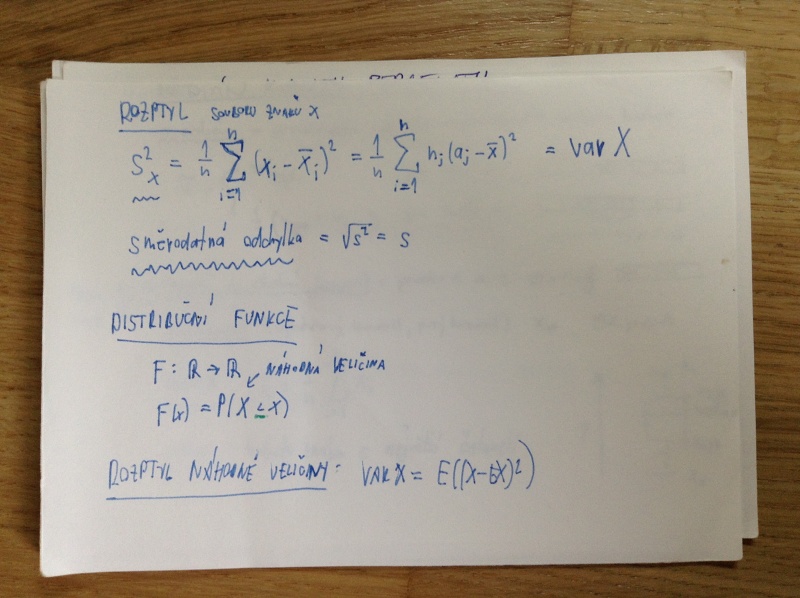 ROZPTYL SOUBORU ZNAKŮ X
S²ₓ = 1/n ∑ᵢ₌₁ⁿ (xᵢ - x̄ᵢ)² = 1/n ∑ᵢ₌₁ⁿ nⱼ(aⱼ - x̄)² = var X
směrodatná odchylka = √s² = s
DISTRIBUČNÍ FUNKCE
F: ℝ → ℝ NÁHODNÁ VELIČINA
F(x) = P(X ≤ x)
ROZPTYL NÁHODNÉ VELIČINY: VAR X = E((X-EX)²)